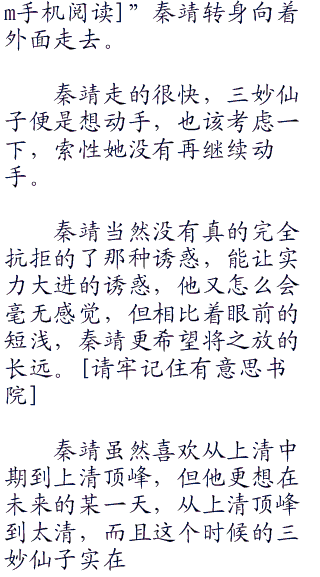 m手机阅读]”秦靖转身向着
外面走去。
秦靖走的很快，三妙仙
子便是想动手，也该考虑一
下，索性她没有再继续动
手。
秦靖当然没有真的完全
抗拒的了那种诱惑，能让实
力大进的诱惑，他又怎么会
毫无感觉，但相比着眼前的
短浅，秦靖更希望将之放的
长远。[请牢记住有意思书
院]
秦靖虽然喜欢从上清中
期到上清顶峰，但他更想在
未来的某一天，从上清顶峰
到太清，而且这个时候的三
妙仙子实在